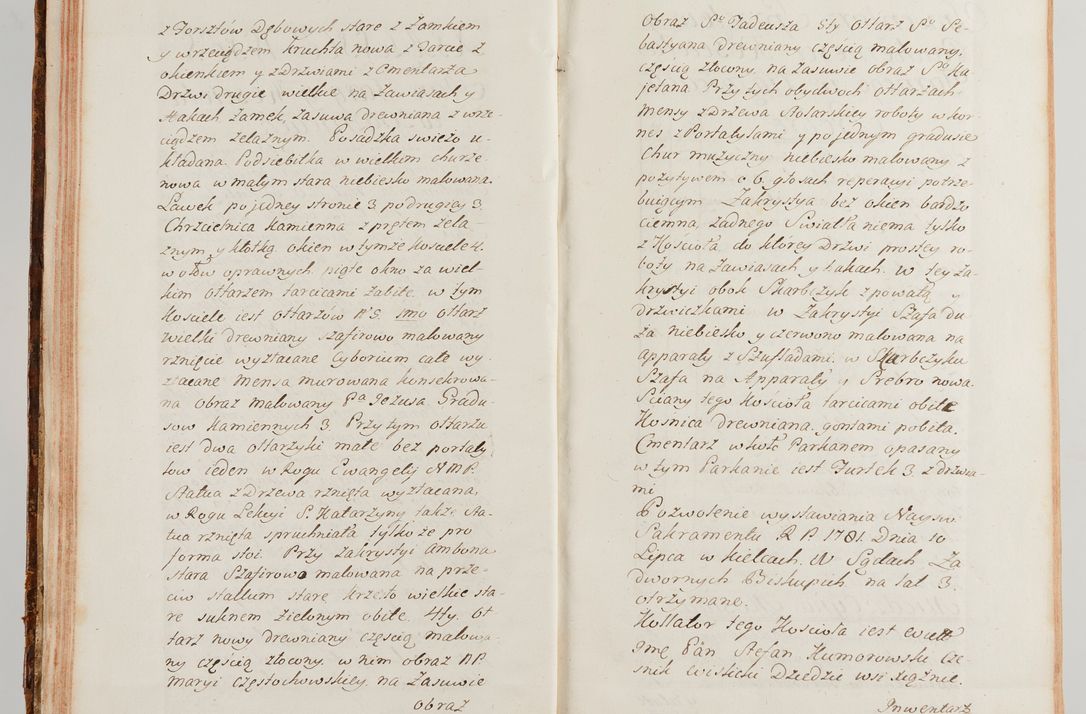 z Forsztów Dębowych stare z Zamkiem
y wrzeciądzem kruchta nowa z Tarcic z
okienkiem y z drzwiami z Cmentarza
Drzwi drugie wielkie na Zawiasach y
Hakach zamek, zasuwa drewniana z wrze-
ciądzem żelaznym. Posadzka swieżo u-
kładana. Podsiebitka w wielkim churze
nowa w małym stara niebiesko malowana.
Ławek po jedney stronie 3 podrugiey 3.
Chrzcielnica kamienna z prętem żela-
znym, y kłotką okien w tymże kosciele 4.
w ołow oprawnych. piąte okno za wiel-
kim ołtarzem tarcicami zabite. w tym
Kosciele iest ołtarzów N 5. 1mo ołtarz
wielki drewniany szafirowo malowany
rznięcie wyzłacane Cyborium całe wy-
złacane Mensa murowana konsekrowa-
na obraz malowany Pa Jezusa Gradu-
sow kamiennych 3. Przy tym ołtarzu
iest dwa ołtarzyki małe bez portaty
low ieden w Rogu Ewangelij NMP.
Statua z Drzewa rznięta wyzłacana,
w Rogu Lekcyi S. Katarzyny także sta-
tua rznięta spruchniała tylko że pro
forma stoi. Przy zakrystyi ambona
stara Szafirowo malowana na prze-
ciw stallum stare krzesło wielkie sta-
re suknem zielonym obite. 4ty. oł
tarz nowy drewniany częscią malowa-
ny częscią złocony. w nim obraz NP.
Maryi Częstochowskiey, na zasuwie
obraz
Obraz So Tadeusza 5ty ołtarz So Se-
bastyana drewniany częscią malowany,
częscią złocony. na zasuwie obraz So Ka
jetana Przy tych obydwoch ołtarzach
Mensy z Drzewa Stolarskiey roboty w kor-
nes z Portatylami y po jednym gradusie
Chur muzyczny niebiesko malowany z
pozytywem o 6. głosach reperacyi potrze-
buiącym Zakrystya bez okien bardzo
ciemna, żadnego Swiatła niema tylko
z Koscioła do którey Drzwi prostey ro-
boty na zawiasach y hakach. w tey za-
krystyi obok Skarbczyk z powałą y
drzwiczkami w Zakrystyi Szafa du
ża niebiesko y czerwono malowana na
apparaty z Szufladami. w Skarbczyku
Szafa na Apparaty y Srebro nowa.
Sciany tego Koscioła tarcicami obite
Kosnica drewniana. gontami pobita.
Cmentarz w koło Parkanem opasany
w tym Parkanie iest Furtek 3. z drzwia-
mi
Pozwolenie wystawiania Nayśw
Sakramentu R P. 1781. Dnia 10
Lipca w Kielcach. W Sądach Za
dwornych Biskupich na lat 3.
otrzymane.
Kollator tego Koscioła iest
Jmc Pan Stefan Humorowski Cze-
snik wislicki Dziedzic wsi Xiążnic.
Inwentarz